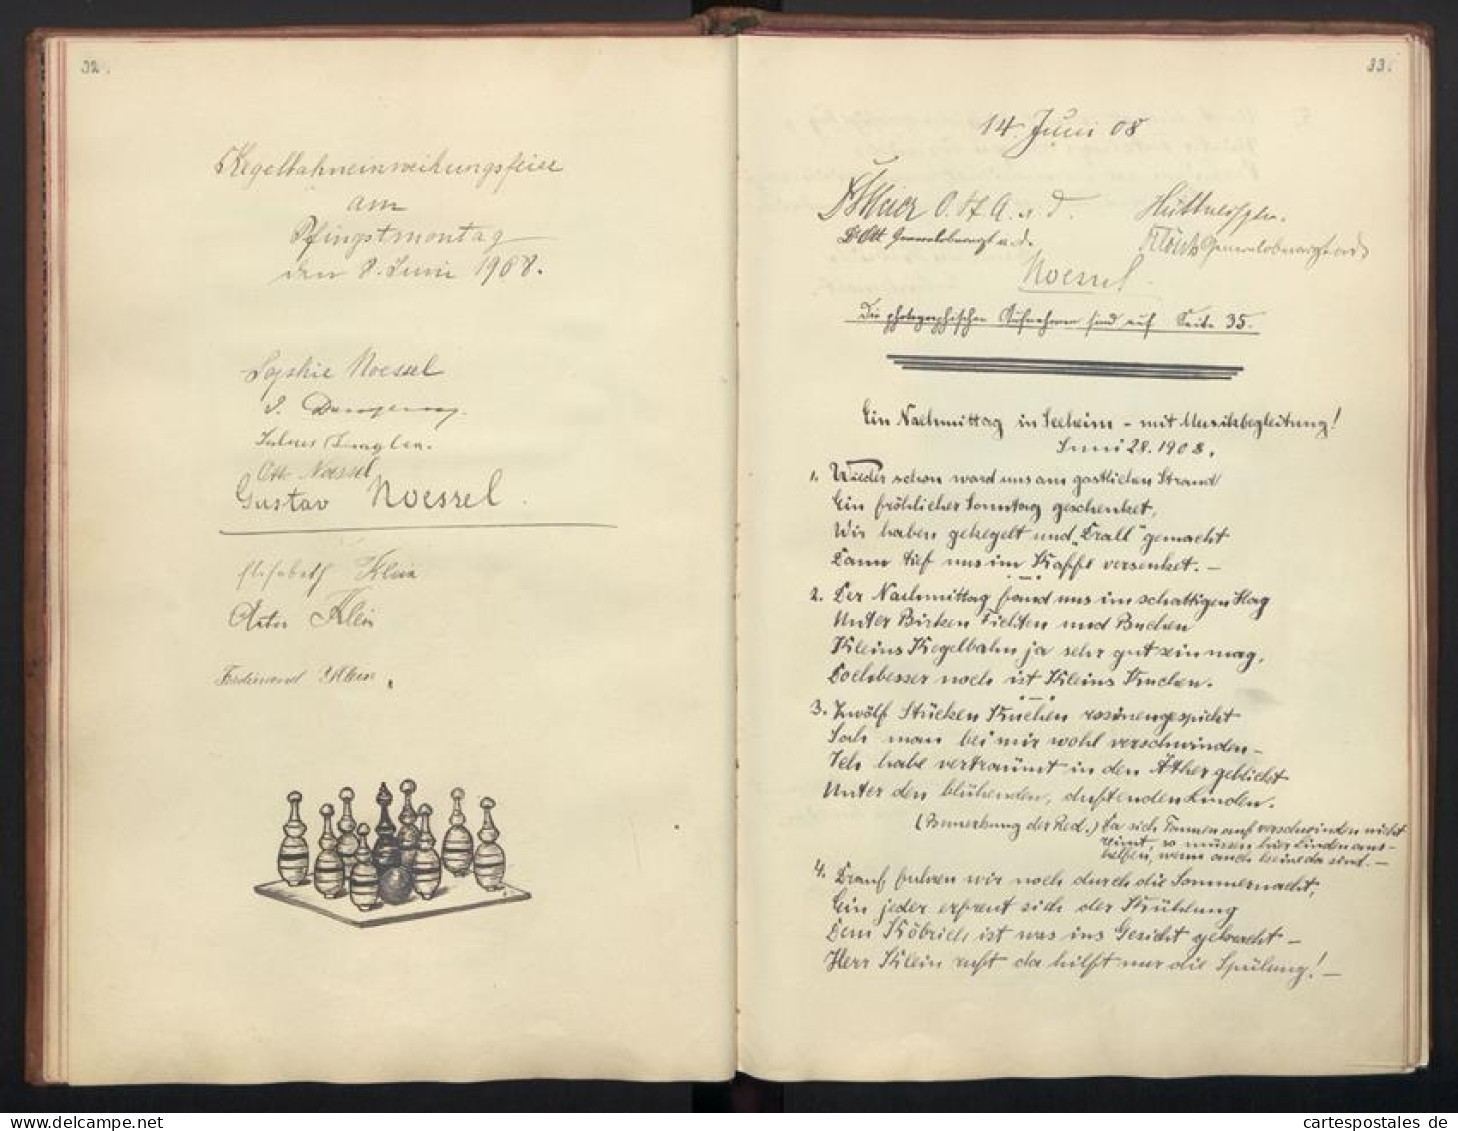 32.
Kegelbahneinweihungsfeier
am
Pfingstmontag
den 8. Juni 1908.
Sophie Noessel
Otto Noessel
Gustav Noessel.
Elisabeth Klein
Artur Klein
Ferdinand Klein.
33.
14. Juni 08
Meier O. St. A. a. d.
Dr Ott Generaloberarzt a. d.
Generaloberarzt a. d.
Noessel.
Die photographischen Aufnahmen sind auf Seite 35.
Ein Nachmittag in Seeheim - mit Musikbegleitung!
Juni 28. 1908.
1. Wieder schon ward uns am gastlichen Strand
Ein fröhlicher Sonntag geschenket,
Wir haben gekegelt und „Drall" gemacht
Dann tief uns im Kaffe versenket. —
2. Der Nachmittag fand uns im schattigen Hag
Unter Birken Fichten und Buchen
Kleins Kegelbahn ja sehr gut sein mag,
Doch besser noch ist Kleins Kuchen.
3. Zwölf Stücken Kuchen rosinengespickt
Sah man bei mir wohl verschwinden —
Ich habe verträumt in den Äther geblickt
Unter den blühenden, duftenden Linden.
(Bemerkung der Red.) Da sich Tannen auf verschwinden nicht
reimt, so müssen hier Linden aus-
helfen, wenn auch keine da sind. —
4. Drauf fuhren wir noch durch die Sommernacht,
Ein jeder erfreut sich der Kühlung
Dem Köbrich ist was ins Gesicht gekracht —
Herr Klein ruft da hilft nur die Spülung! —
cartespostales de